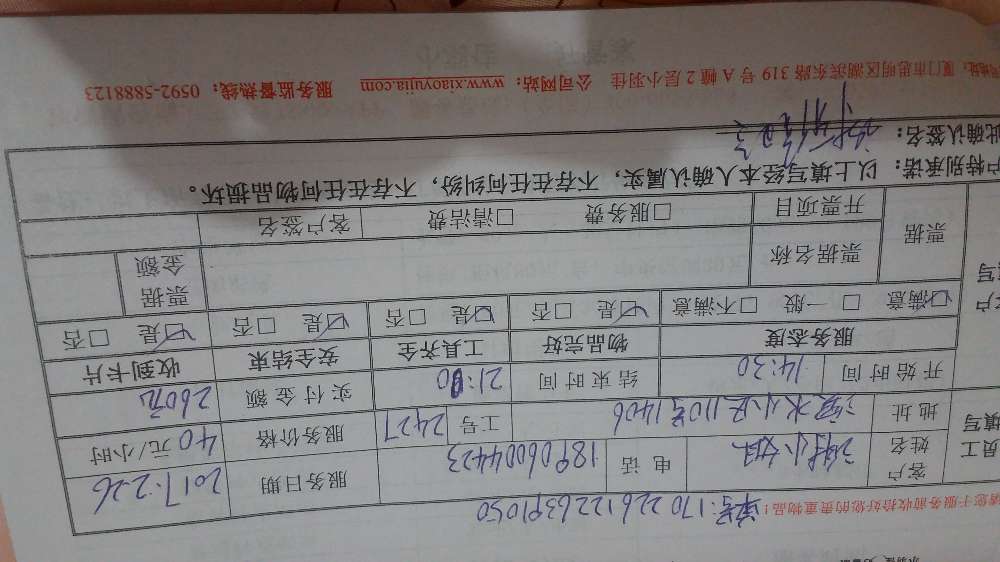 请您于服务前收拾好您的贵重物品！ 单号:170226122639I050
员工填写 客户姓名 小姐 电话 18906004423 服务日期 2017.2.26
地址 滨水小区110号1406 工号 2427 服务价格 40元/小时
开始时间 14:30 结束时间 21:00 实付金额 260元
服务态度 物品完好 工具齐全 安全结束 收到卡片
☑满意 □一般 □不满意 ☑是 □否 ☑是 □否 ☑是 □否 ☑是 □否
票据 票据名称 票据金额
开票项目 □服务费 □清洁费 客户签名
户特别承诺：以上填写经本人确认属实，不存在任何纠纷，不存在任何物品损坏。
此确认签名：
地址：厦门市思明区湖滨东路 319 号 A 幢 2 层小羽佳 公司网站：www.xiaoyujia.com 服务监督热线：0592-5888123